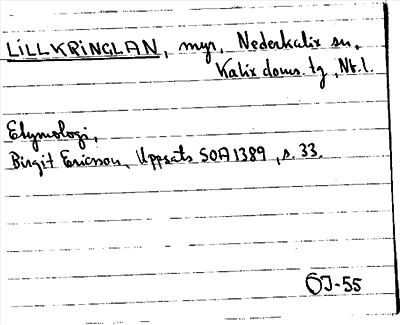 LILLKRINGLAN, myr, Nederkalix sn,
Kalix doms. tg, Nb. l.
Etymologi,
Birgit Ericson, Uppsats SOA 1389, s. 33.
OJ-55